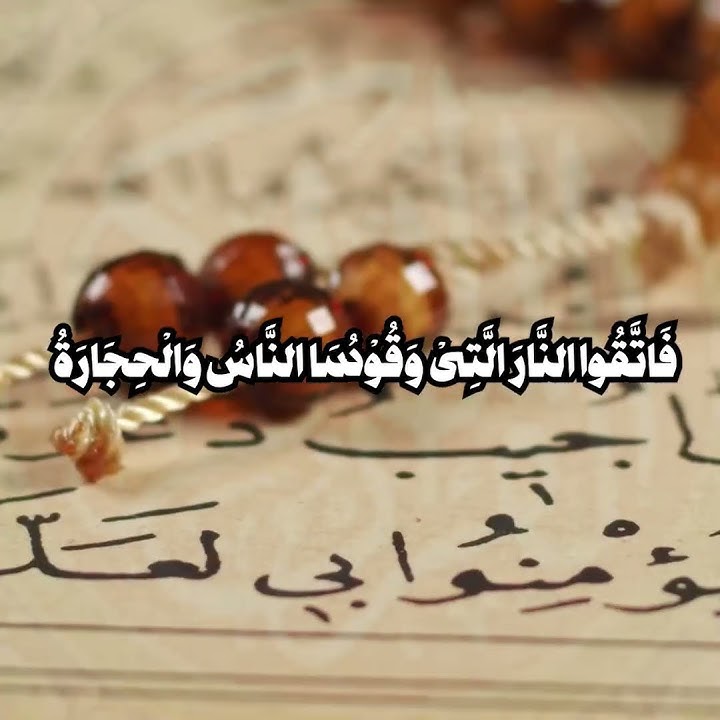 فَاتَّقُوا النَّارَ الَّتِيْ وَقُوْدُهَا النَّاسُ وَالْحِجَارَةُ
أُجِيبُ
يُؤْمِنُوا بِي لَعَلَّ